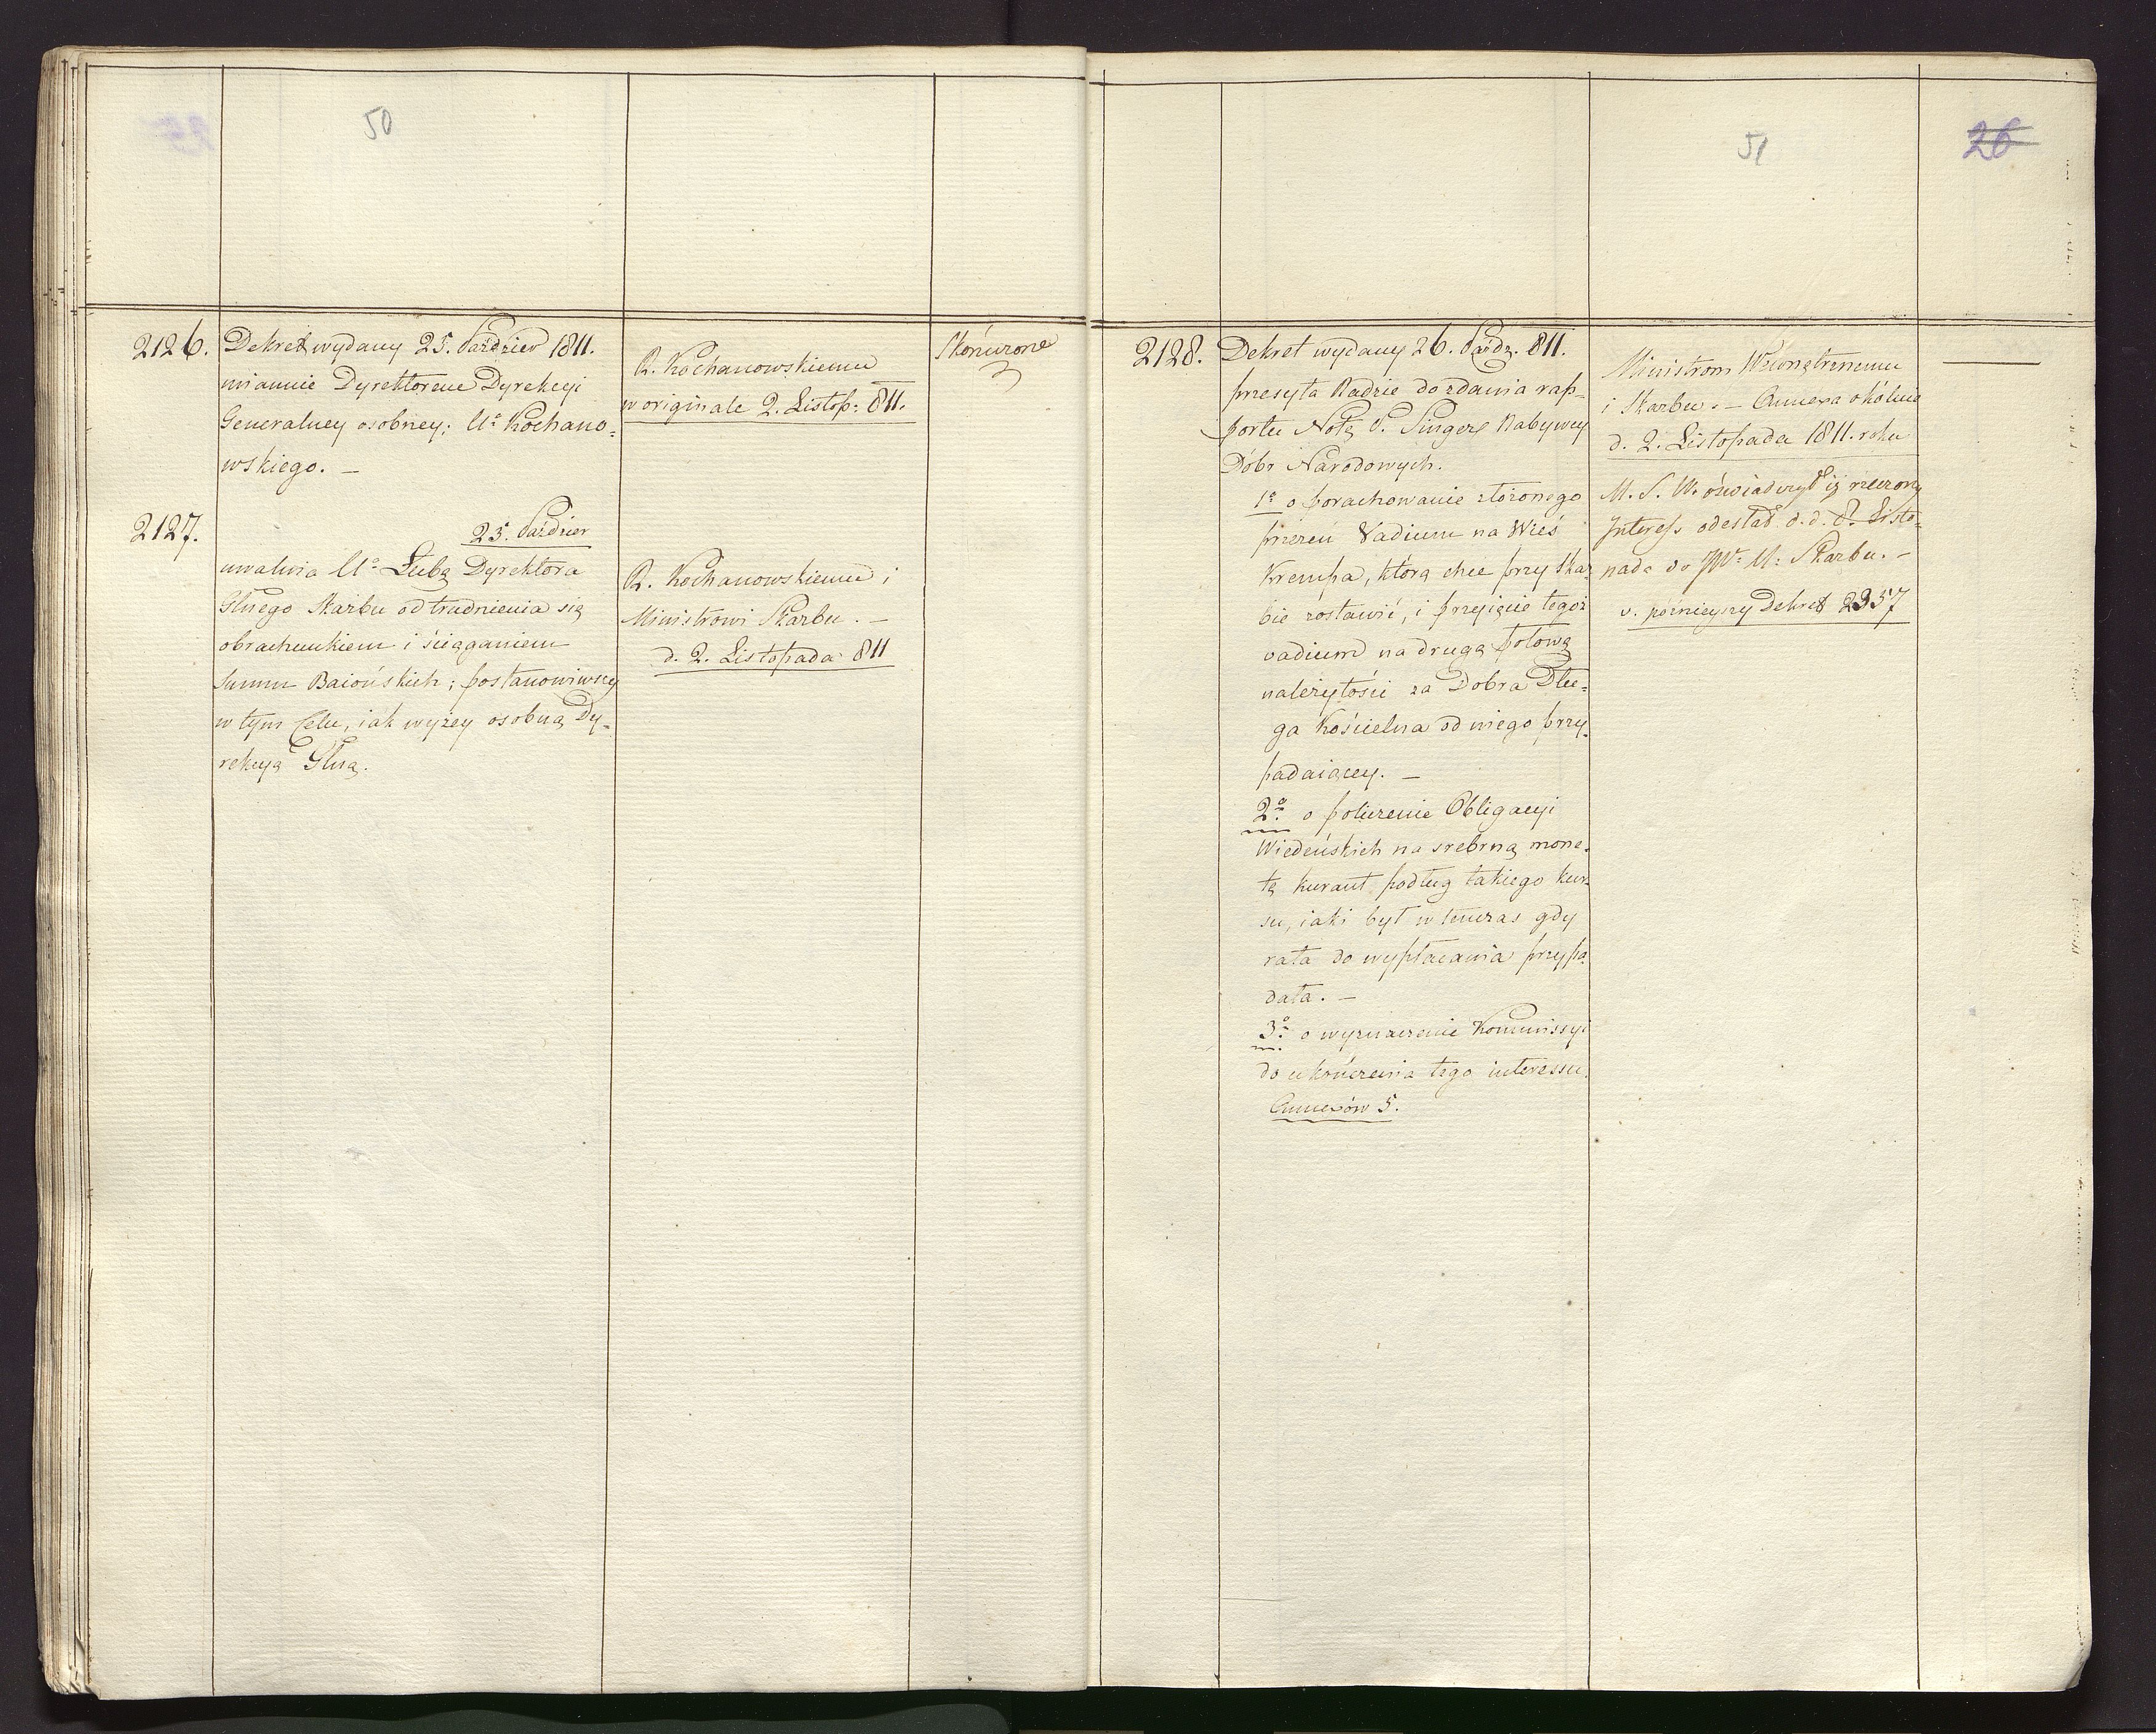 50
2126.
Dekret wydany 25. Paździer 1811.
mianuie Dyrektorem Dyrekcyi
Generalney osobney; Ur Kochano-
wskiego. —
R. Kochanowskiemu
w originale 2. Listop: 811.
Skończone
2127.
25. Paździer
uwalnia Ur Łubę Dyrektora
Glnego Skarbu od trudnienia się
obrachunkiem i ściąganiem
Summ Baiońskich; postanowiwszy
w tym Celu, iak wyżey osobną Dy-
rekcyą Glną.
R. Kochanowskiemu i
Ministrowi Skarbu. —
d. 2. Listopada 811
51
26
2128.
Dekret wydany 26. Paźdz. 811.
przesyła Radzie do zdania rap-
portu Notę P. Singer Nabywcy
Dóbr Narodowych.
1o o porachowanie złożonego
przezeń Vadium na Wieś
Krempa, którą chce przy Skar-
bie zostawić, i przyięcie tegoż
vadium na drugą połowę
należytości za Dobra Dłu-
ga Kościelna od niego przy-
padaiącey. —
2o o policzenie Obligacyi
Wiedeńskich na srebrną mone-
tę kurant podług takiego kur-
su, iaki był wtenczas gdy
rata do wypłacania przypa
dała. —
3o o wyznaczenie Kommissyi
do ukończenia tego interessu.
Annexów 5.
Ministrom Wewnętrznemu
i Skarbu. — Annexa okólnie
d. 2. Listopada 1811. roku
M. S. W. oświadczył iż rzeczony
Interess odesłał d. d. 8. Listo-
pada do JW. M: Skarbu. —
v. poźnieyszy Dekret 2357